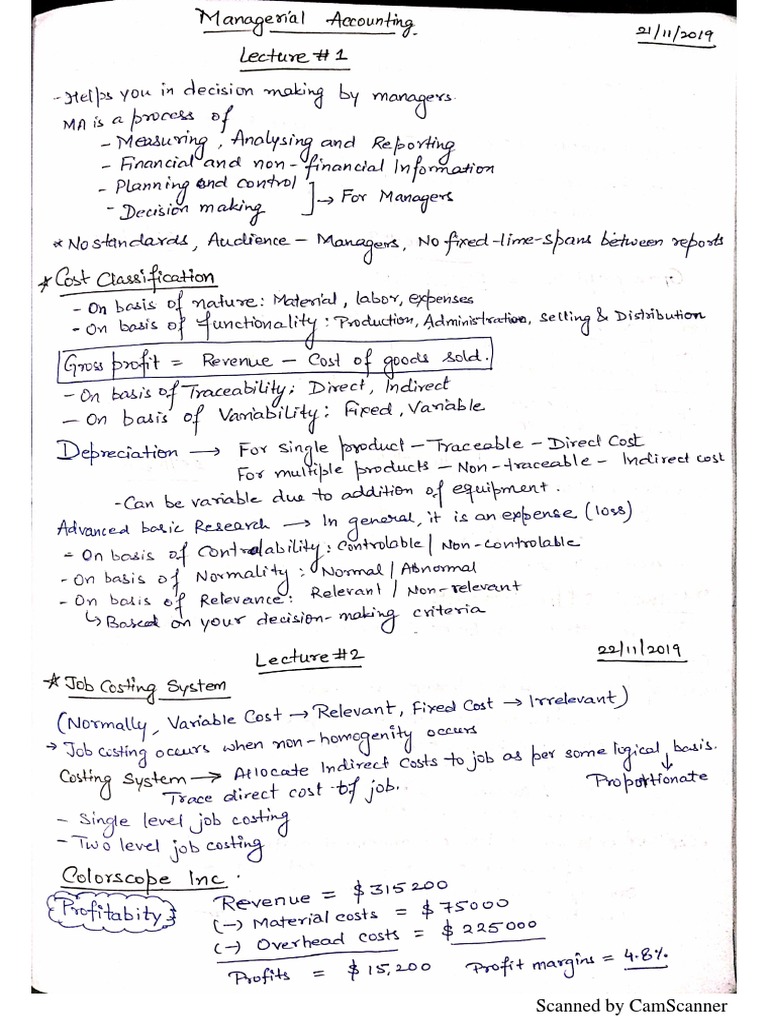 Managerial Accounting.
21/11/2019
Lecture #1
- Helps you in decision making by managers.
MA is a process of
- Measuring, Analysing and Reporting
- Financial and non-financial Information
- Planning and control
- Decision making ] → For Managers
* No standards, Audience - Managers, No fixed-time-spans between reports
* Cost Classification
- On basis of nature: Material, labor, expenses
- On basis of functionality: Production, Administration, Selling & Distribution
Gross profit = Revenue - Cost of goods sold.
- On basis of Traceability: Direct, Indirect
- On basis of Variability: Fixed, Variable
Depreciation → For single product - Traceable - Direct Cost
For multiple products - Non-traceable - Indirect cost
- Can be variable due to addition of equipment.
Advanced basic Research → In general, it is an expense (loss)
- On basis of Controlability: Controlable / Non-controlable
- On basis of Normality: Normal / Abnormal
- On basis of Relevance: Relevant / Non-relevant
↳ Based on your decision-making criteria
Lecture #2
22/11/2019
* Job Costing System
(Normally, Variable Cost → Relevant, Fixed Cost → Irrelevant)
→ Job costing occurs when non-homogenity occurs
Costing System → Allocate Indirect Costs to job as per some logical basis.
Trace direct cost of job. ↓ Proportionate
- Single level job costing
- Two level job costing
Colorscope Inc.
Profitabity
Revenue = $315200
(-) Material costs = $75000
(-) Overhead costs = $225000
Profits = $15,200 Profit margins = 4.8%
Scanned by CamScanner